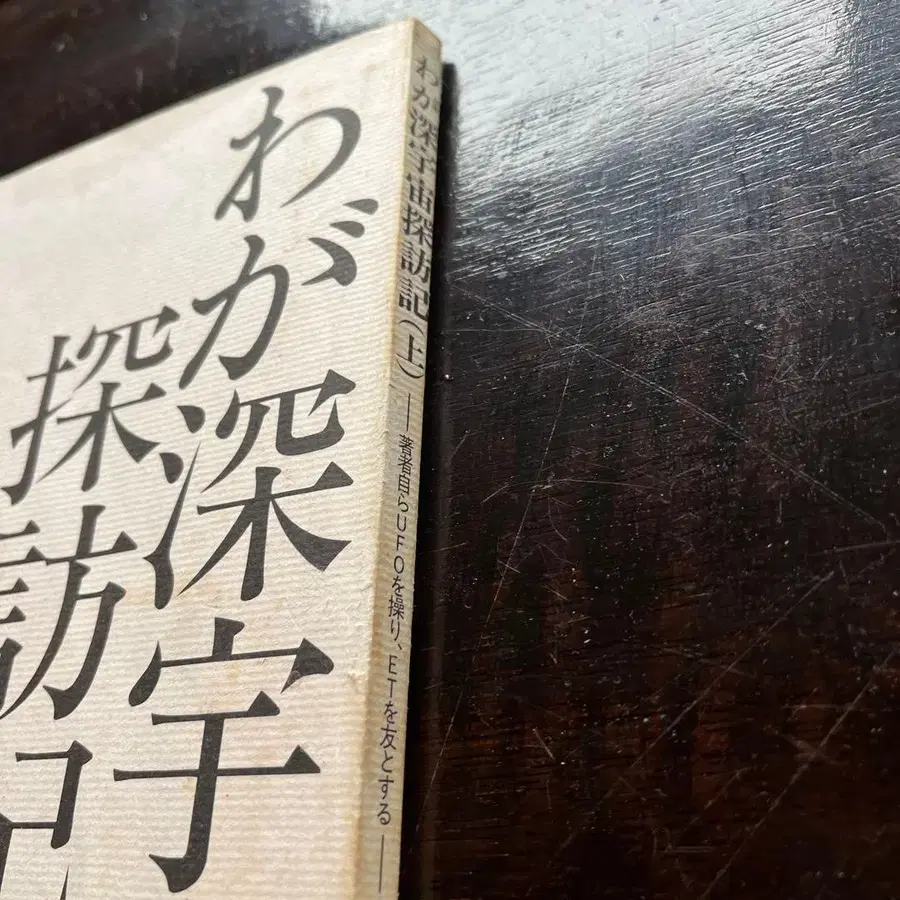 わが深宇
探訪記
わが深宇宙探訪記(上)──著者自らUFOを操り、ETを友とする──